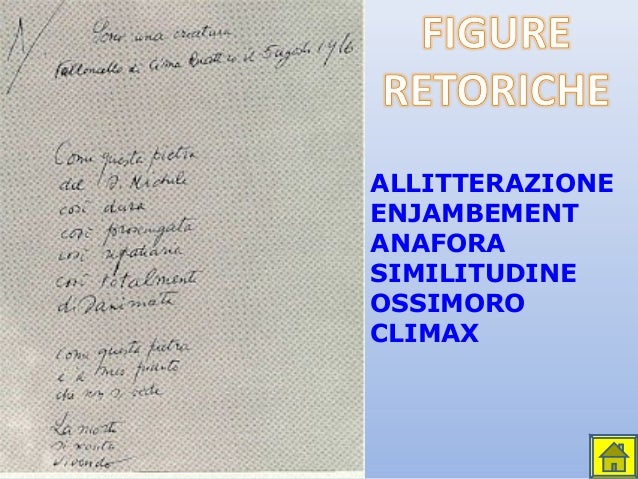 Sono una creatura
Valloncello di Cima Quattro il 5 agosto 1916
Come questa pietra
del S. Michele
così dura
così prosciugata
così refrattaria
così totalmente
disanimata
Come questa pietra
è il mio pianto
che non si vede
La morte
si sconta
vivendo
FIGURE
RETORICHE
ALLITTERAZIONE
ENJAMBEMENT
ANAFORA
SIMILITUDINE
OSSIMORO
CLIMAX